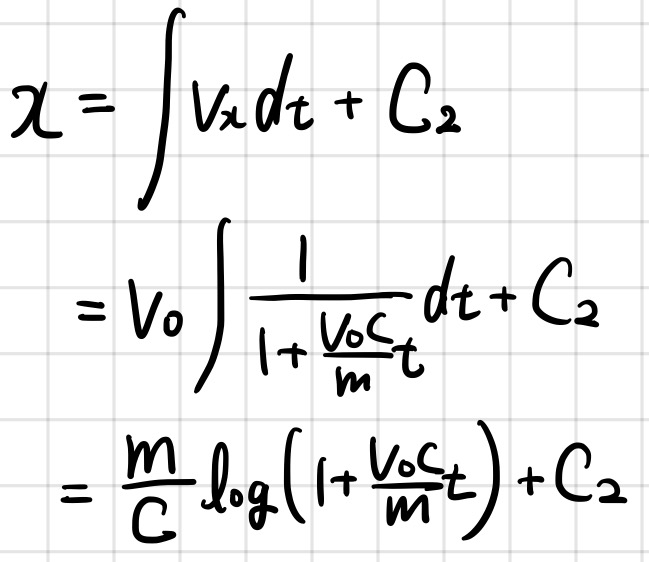 x = ∫ Vx dt + C₂
= V₀ ∫ 1/(1 + (V₀C/m) t) dt + C₂
= m/C log(1 + (V₀C/m) t) + C₂